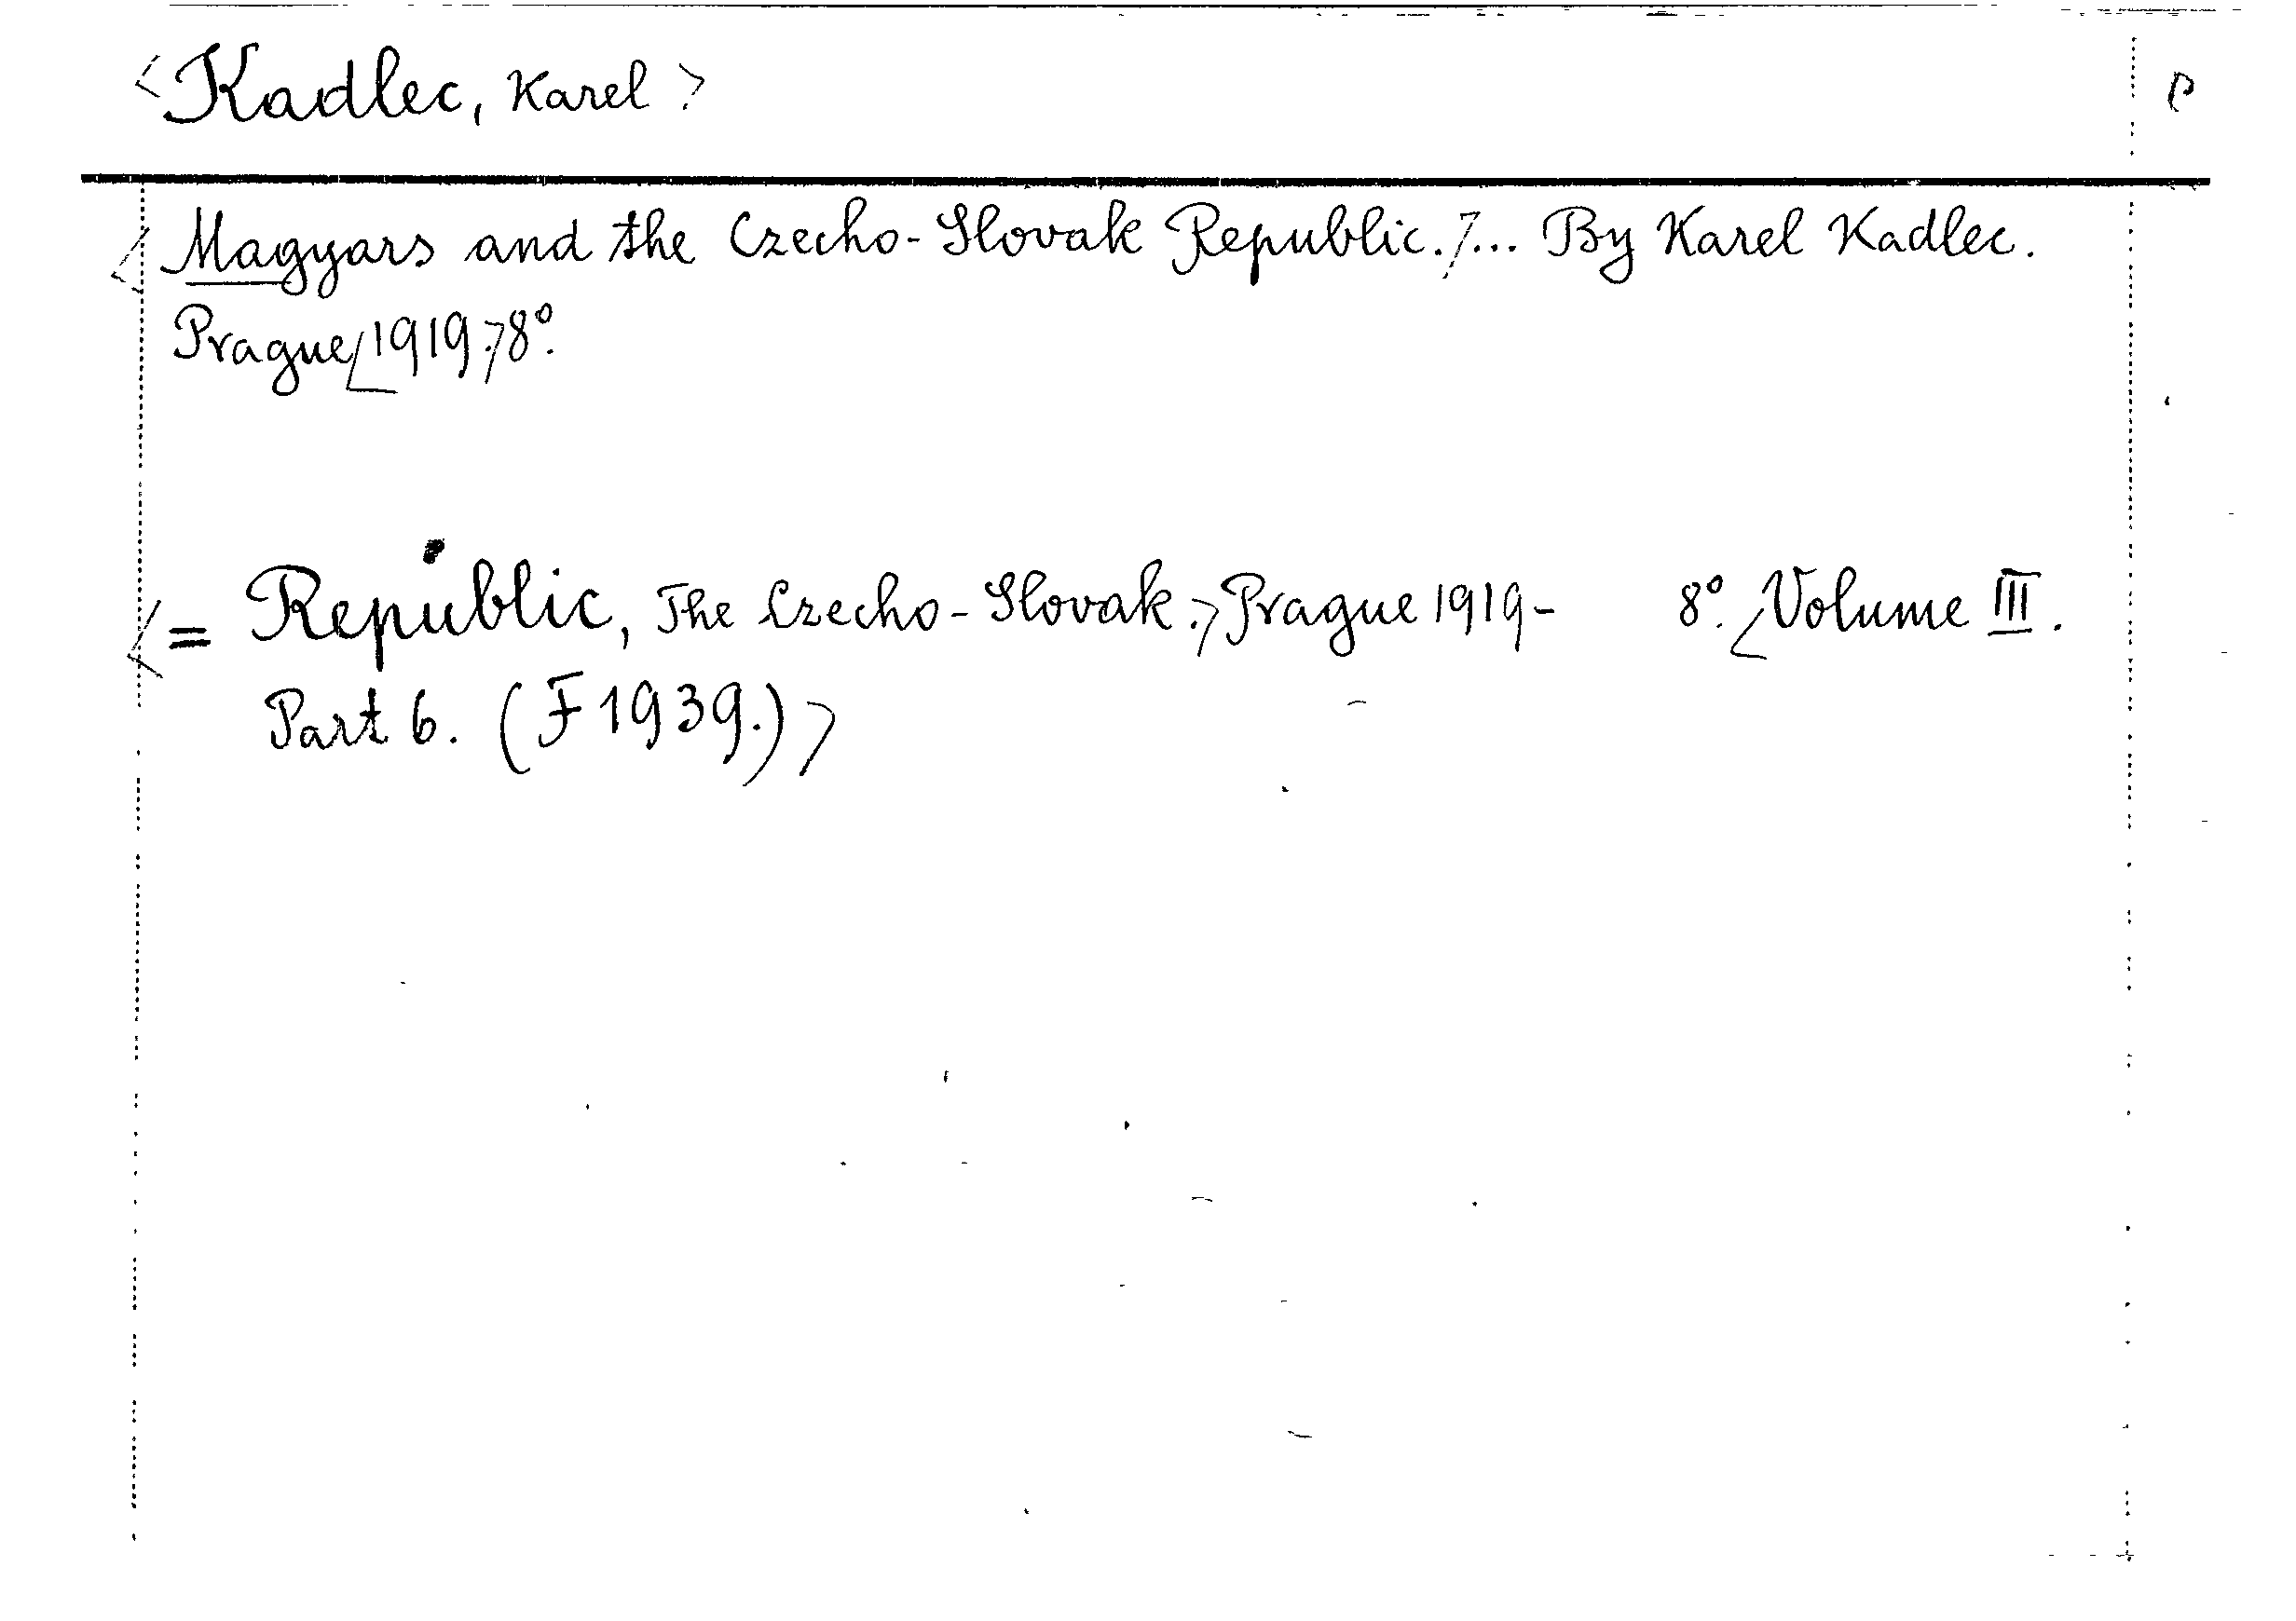 <Kadlec, Karel>
<Magyars and the Czecho-Slovak Republic.>... By Karel Kadlec.
Prague <1919.> 8°.
<= Republic, The Czecho-Slovak.> Prague 1919- 8°. <Volume III.
Part 6. (F 1939.)>